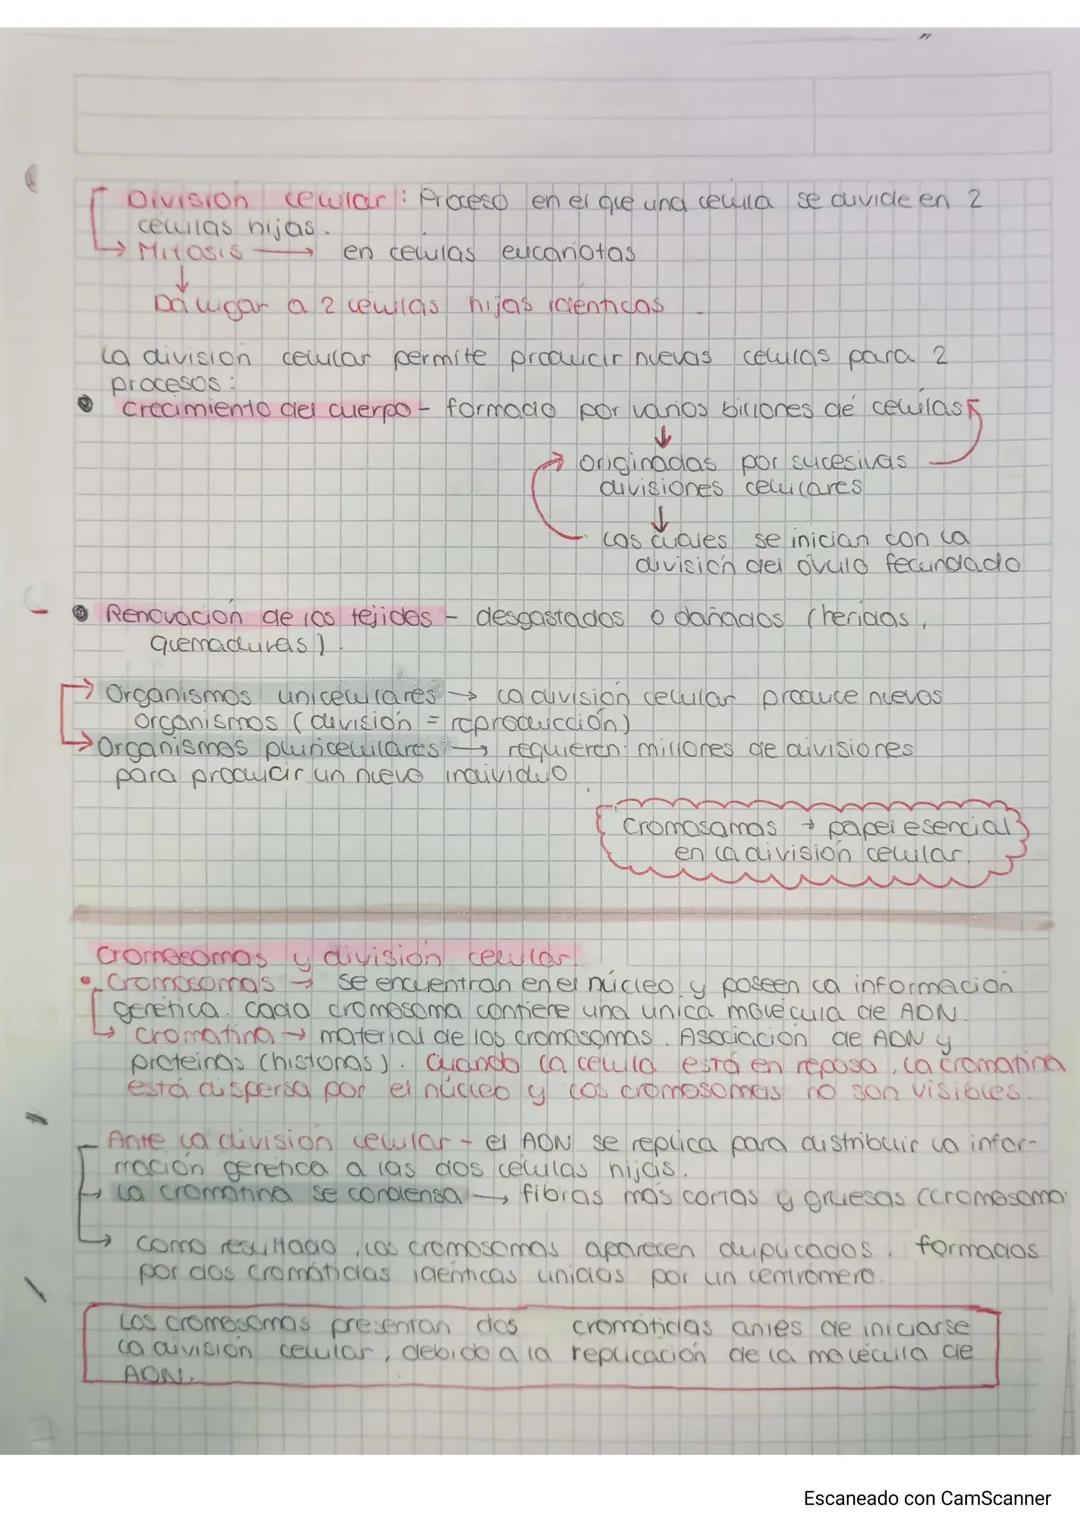 División celular: Proceso en el que una célula se divide en 2
células hijas.
Mitosis → en células eucariotas
↓
Da lugar a 2 células hijas idénticas
La división celular permite producir nuevas células para 2
procesos:
Crecimiento del cuerpo - formado por varios billones de células
↓
originadas por sucesivas
divisiones celulares
↓
las cuales se inician con la
división del óvulo fecundado
Renovación de los tejidos - desgastados o dañados (heridas,
quemaduras).
Organismos unicelulares → la división celular produce nuevos
organismos (división = reproducción)
Organismos pluricelulares → requieren millones de divisiones
para producir un nuevo individuo
Cromosamas → papel esencial
en la división celular.
Cromosomas y división celular
• Cromosomas → se encuentran en el núcleo y poseen la información
genética. Cada cromosoma contiene una única molécula de ADN.
Cromatina → material de los cromosomas. Asociación de ADN y
proteínas (histonas). Cuando la célula está en reposo, la cromatina
está dispersa por el núcleo y los cromosomas no son visibles.
Ante la división celular - el ADN se replica para distribuir la infor-
mación genética a las dos células hijas.
La cromatina se condensa → fibras más cortas y gruesas (cromosoma
Como resultado, los cromosomas aparecen duplicados, formados
por dos cromátidas idénticas unidas por un centrómero.
Los cromosomas presentan dos cromátidas antes de iniciarse
la división celular, debido a la replicación de la molécula de
ADN.
Escaneado con CamScanner